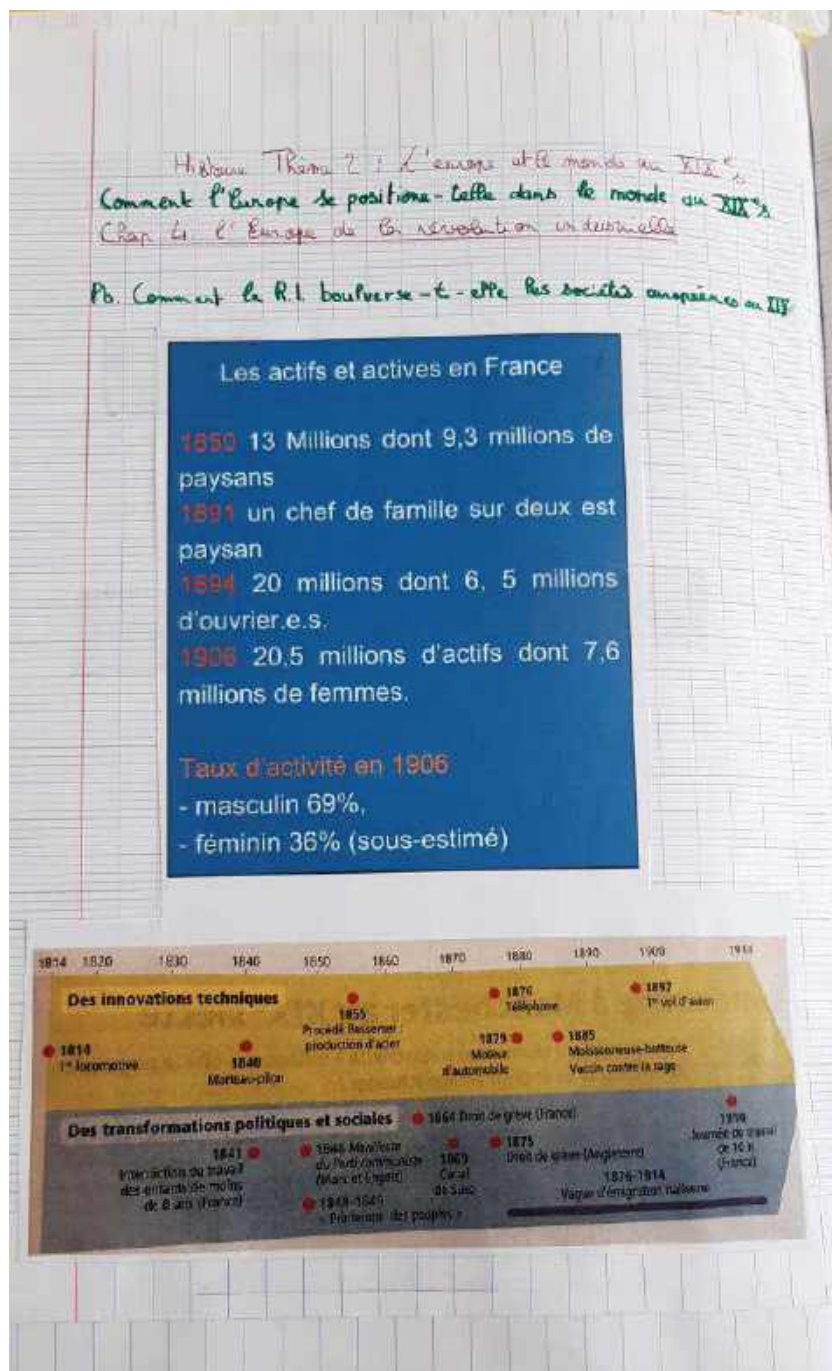 Histoire Thème 2 : L'europe et le monde au XIXe s
Comment l'Europe se positione-t-elle dans le monde au XIXe s
Chap 4 l'Europe de la révolution industrielle
Pb. Comment la R.I. boulverse-t-elle les sociétés européenes au XIX
Les actifs et actives en France
1850 13 Millions dont 9,3 millions de
paysans
1891 un chef de famille sur deux est
paysan
1894 20 millions dont 6, 5 millions
d'ouvrier.e.s.
1906 20,5 millions d'actifs dont 7,6
millions de femmes.
Taux d'activité en 1906
- masculin 69%,
- féminin 36% (sous-estimé)
1814 1820 1830 1840 1850 1860 1870 1880 1890 1900 1914
Des innovations techniques
1814
1re locomotive
1840
Marteau-pilon
1855
Procédé Bessemer :
production d'acier
1876
Téléphone
1879
Moteur
d'automobile
1885
Moissonneuse-batteuse
Vaccin contre la rage
1897
1er vol d'avion
Des transformations politiques et sociales
1841
Interdiction du travail
des enfants de moins
de 8 ans (France)
1848 Manifeste
du Parti communiste
(Marx et Engels)
1848-1849
« Printemps des peuples »
1864 Droit de grève (France)
1869
Canal
de Suez
1875
Droit de grève (Angleterre)
1876-1914
Vague d'émigration italienne
Journée de travail
de 10 h
(France)